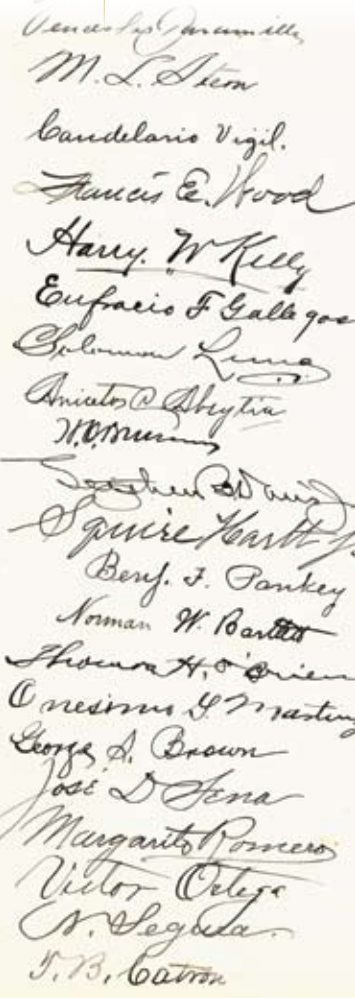 Venceslao Jaramillo
M. L. Stern
Candelario Vigil.
Francis E. Wood
Harry. W Kelly
Eufracio F Gallegos
Solomon Luna
Anicetos C Abeytia
Stephen B Davis Jr
Squire Hartt Jr
Benj. F. Pankey
Norman W. Bartlett
Thomas H. O'Brien
Onesimo G. Martinez
George S. Brown
José D Sena
Margarito Romero
Victor Ortega
N. Segura.
T. B. Catron